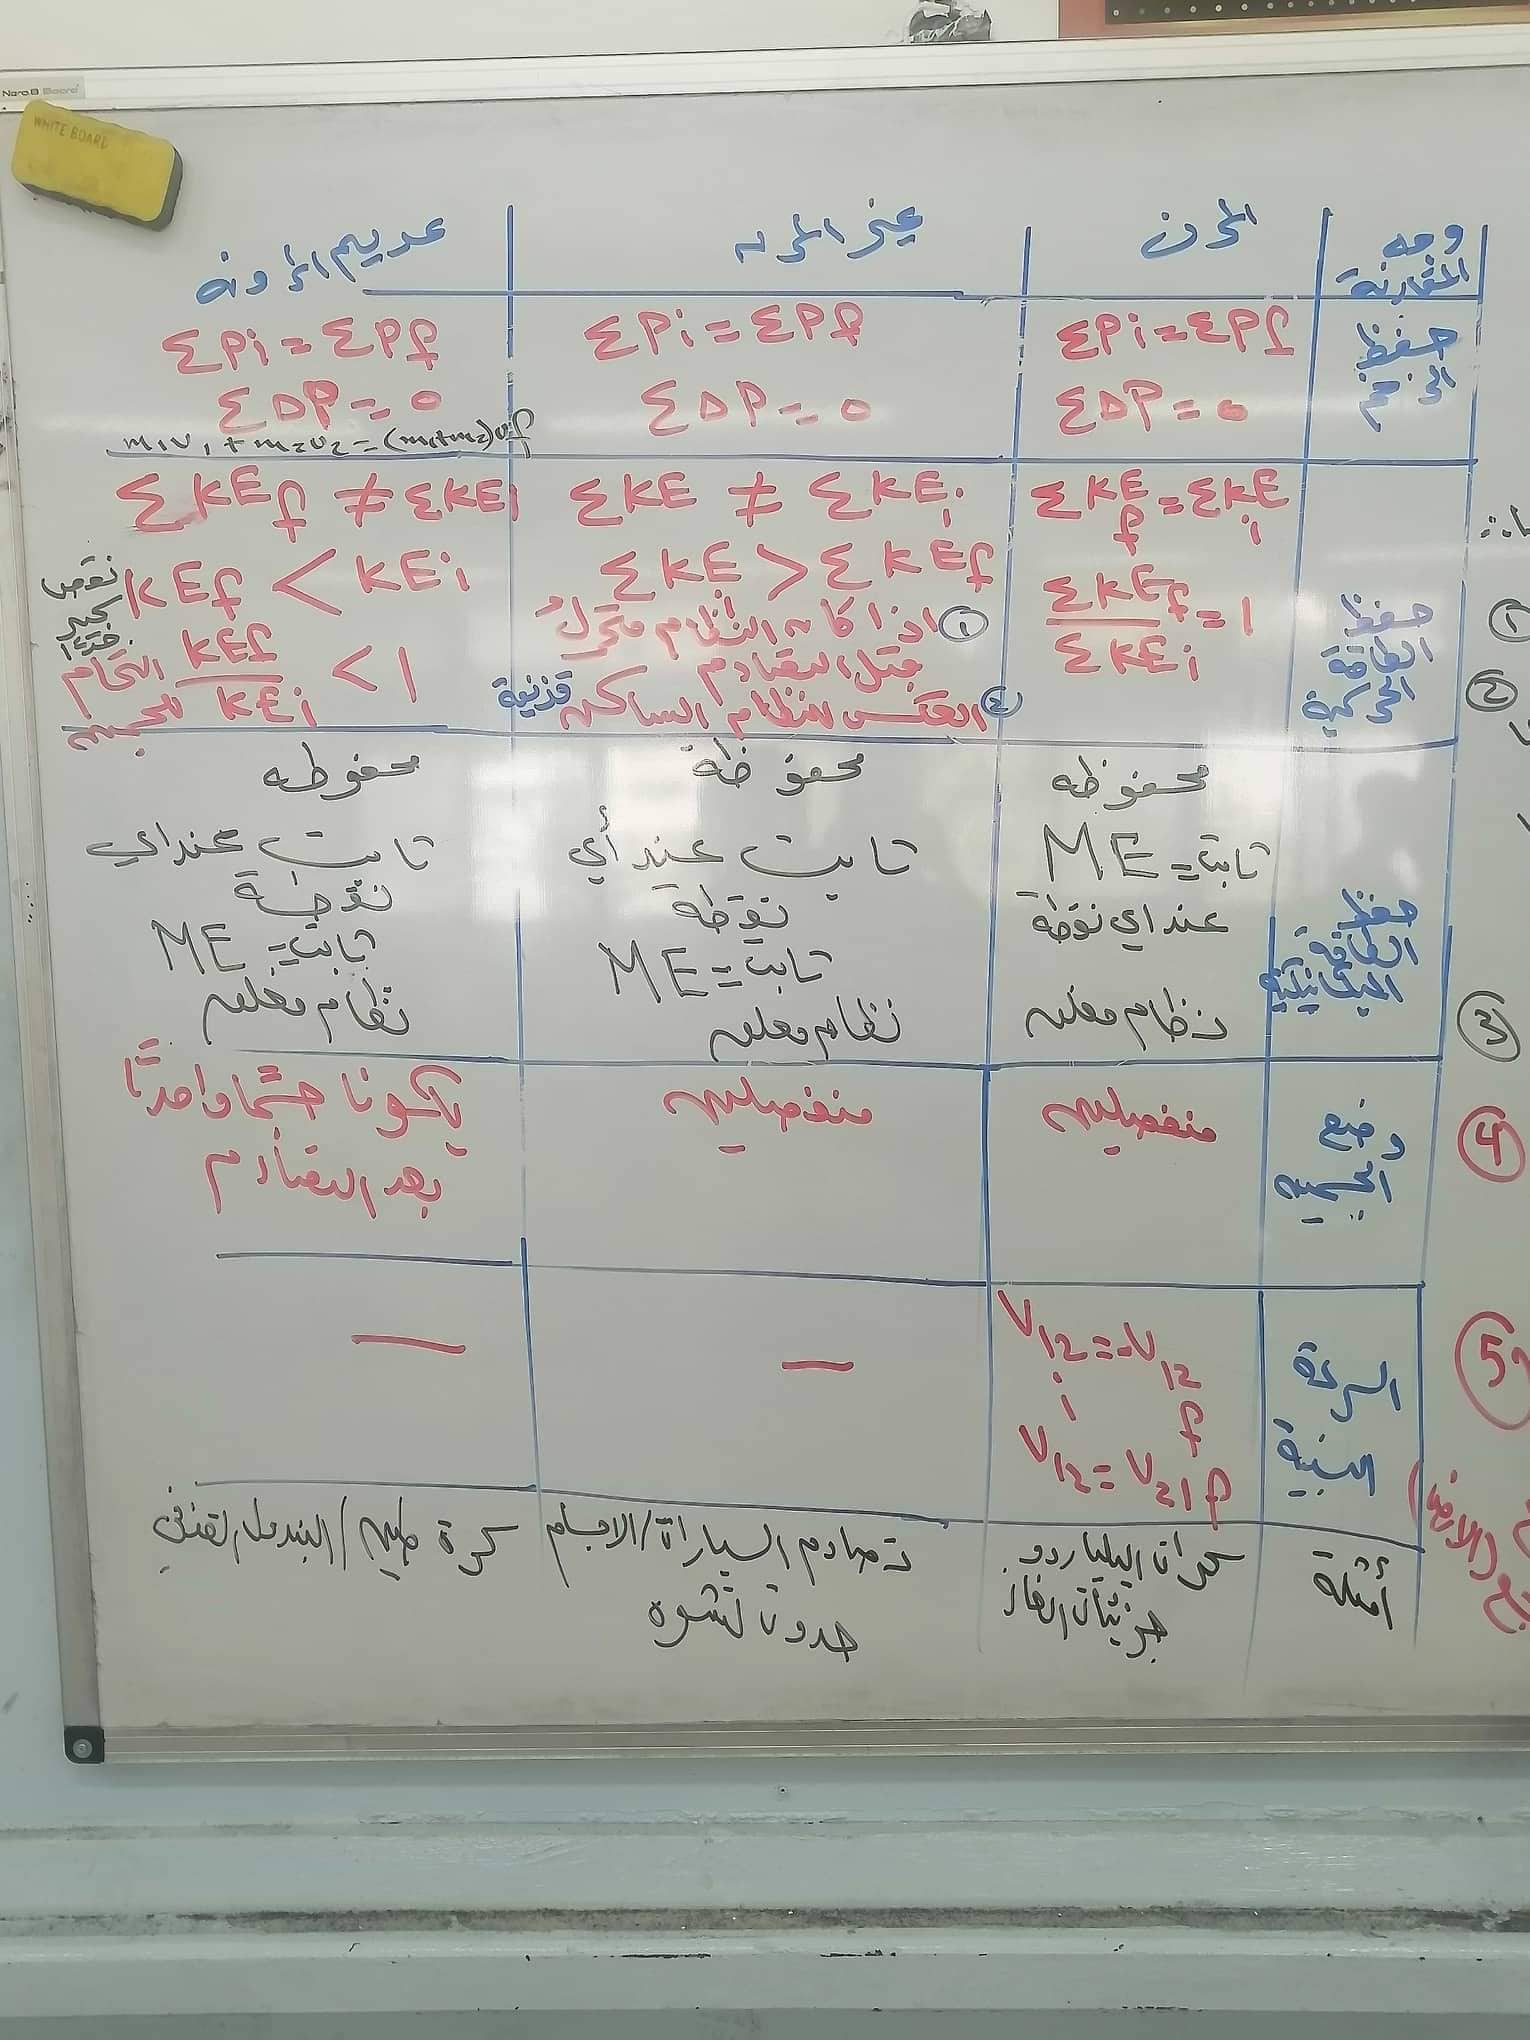 Nara Board
WHITE BOARD
وجه
المقارنة
المرن
غير المرن
عديم المرونة
حفظ
الزخم
ΣPi=ΣPf
ΣΔP=0
ΣPi=ΣPf
ΣΔP=0
ΣPi=ΣPf
ΣΔP=0
m1v1+m2v2=(m1+m2)vf
حفظ
الطاقة
الحركية
ΣKEf=ΣKEi
ΣKEf/ΣKEi=1
ΣKE≠ΣKEi
ΣKEi>ΣKEf
① اذا كان النظام متحرك
قبل التصادم
② العكس للنظام الساكن
ΣKEf≠ΣKEi
KEf<KEi
نقص
كبير
KEf/KEi<1
التحام
حفظ
الطاقة
الميكانيكية
محفوظه
ME=ثابت
عند اي نقطة
نظام مغلق
محفوظة
ثابت عند أي
نقطة
ME=ثابت
نظام مغلق
محفوظه
ثابت عند اي
نقطة
ME=ثابت
نظام مغلق
وضع
الجسمين
منفصلين
منفصلين
يكونا جسما واحدًا
بعد التصادم
السرعة
النسبية
V12i=-V12f
V12i=V21f
—
—
أمثلة
كرات البلياردو
جزيئات الغاز
تصادم السيارات/الاجسام
حدوث تشوه
كرة طين/البندول القذفي
②
③
④
⑤